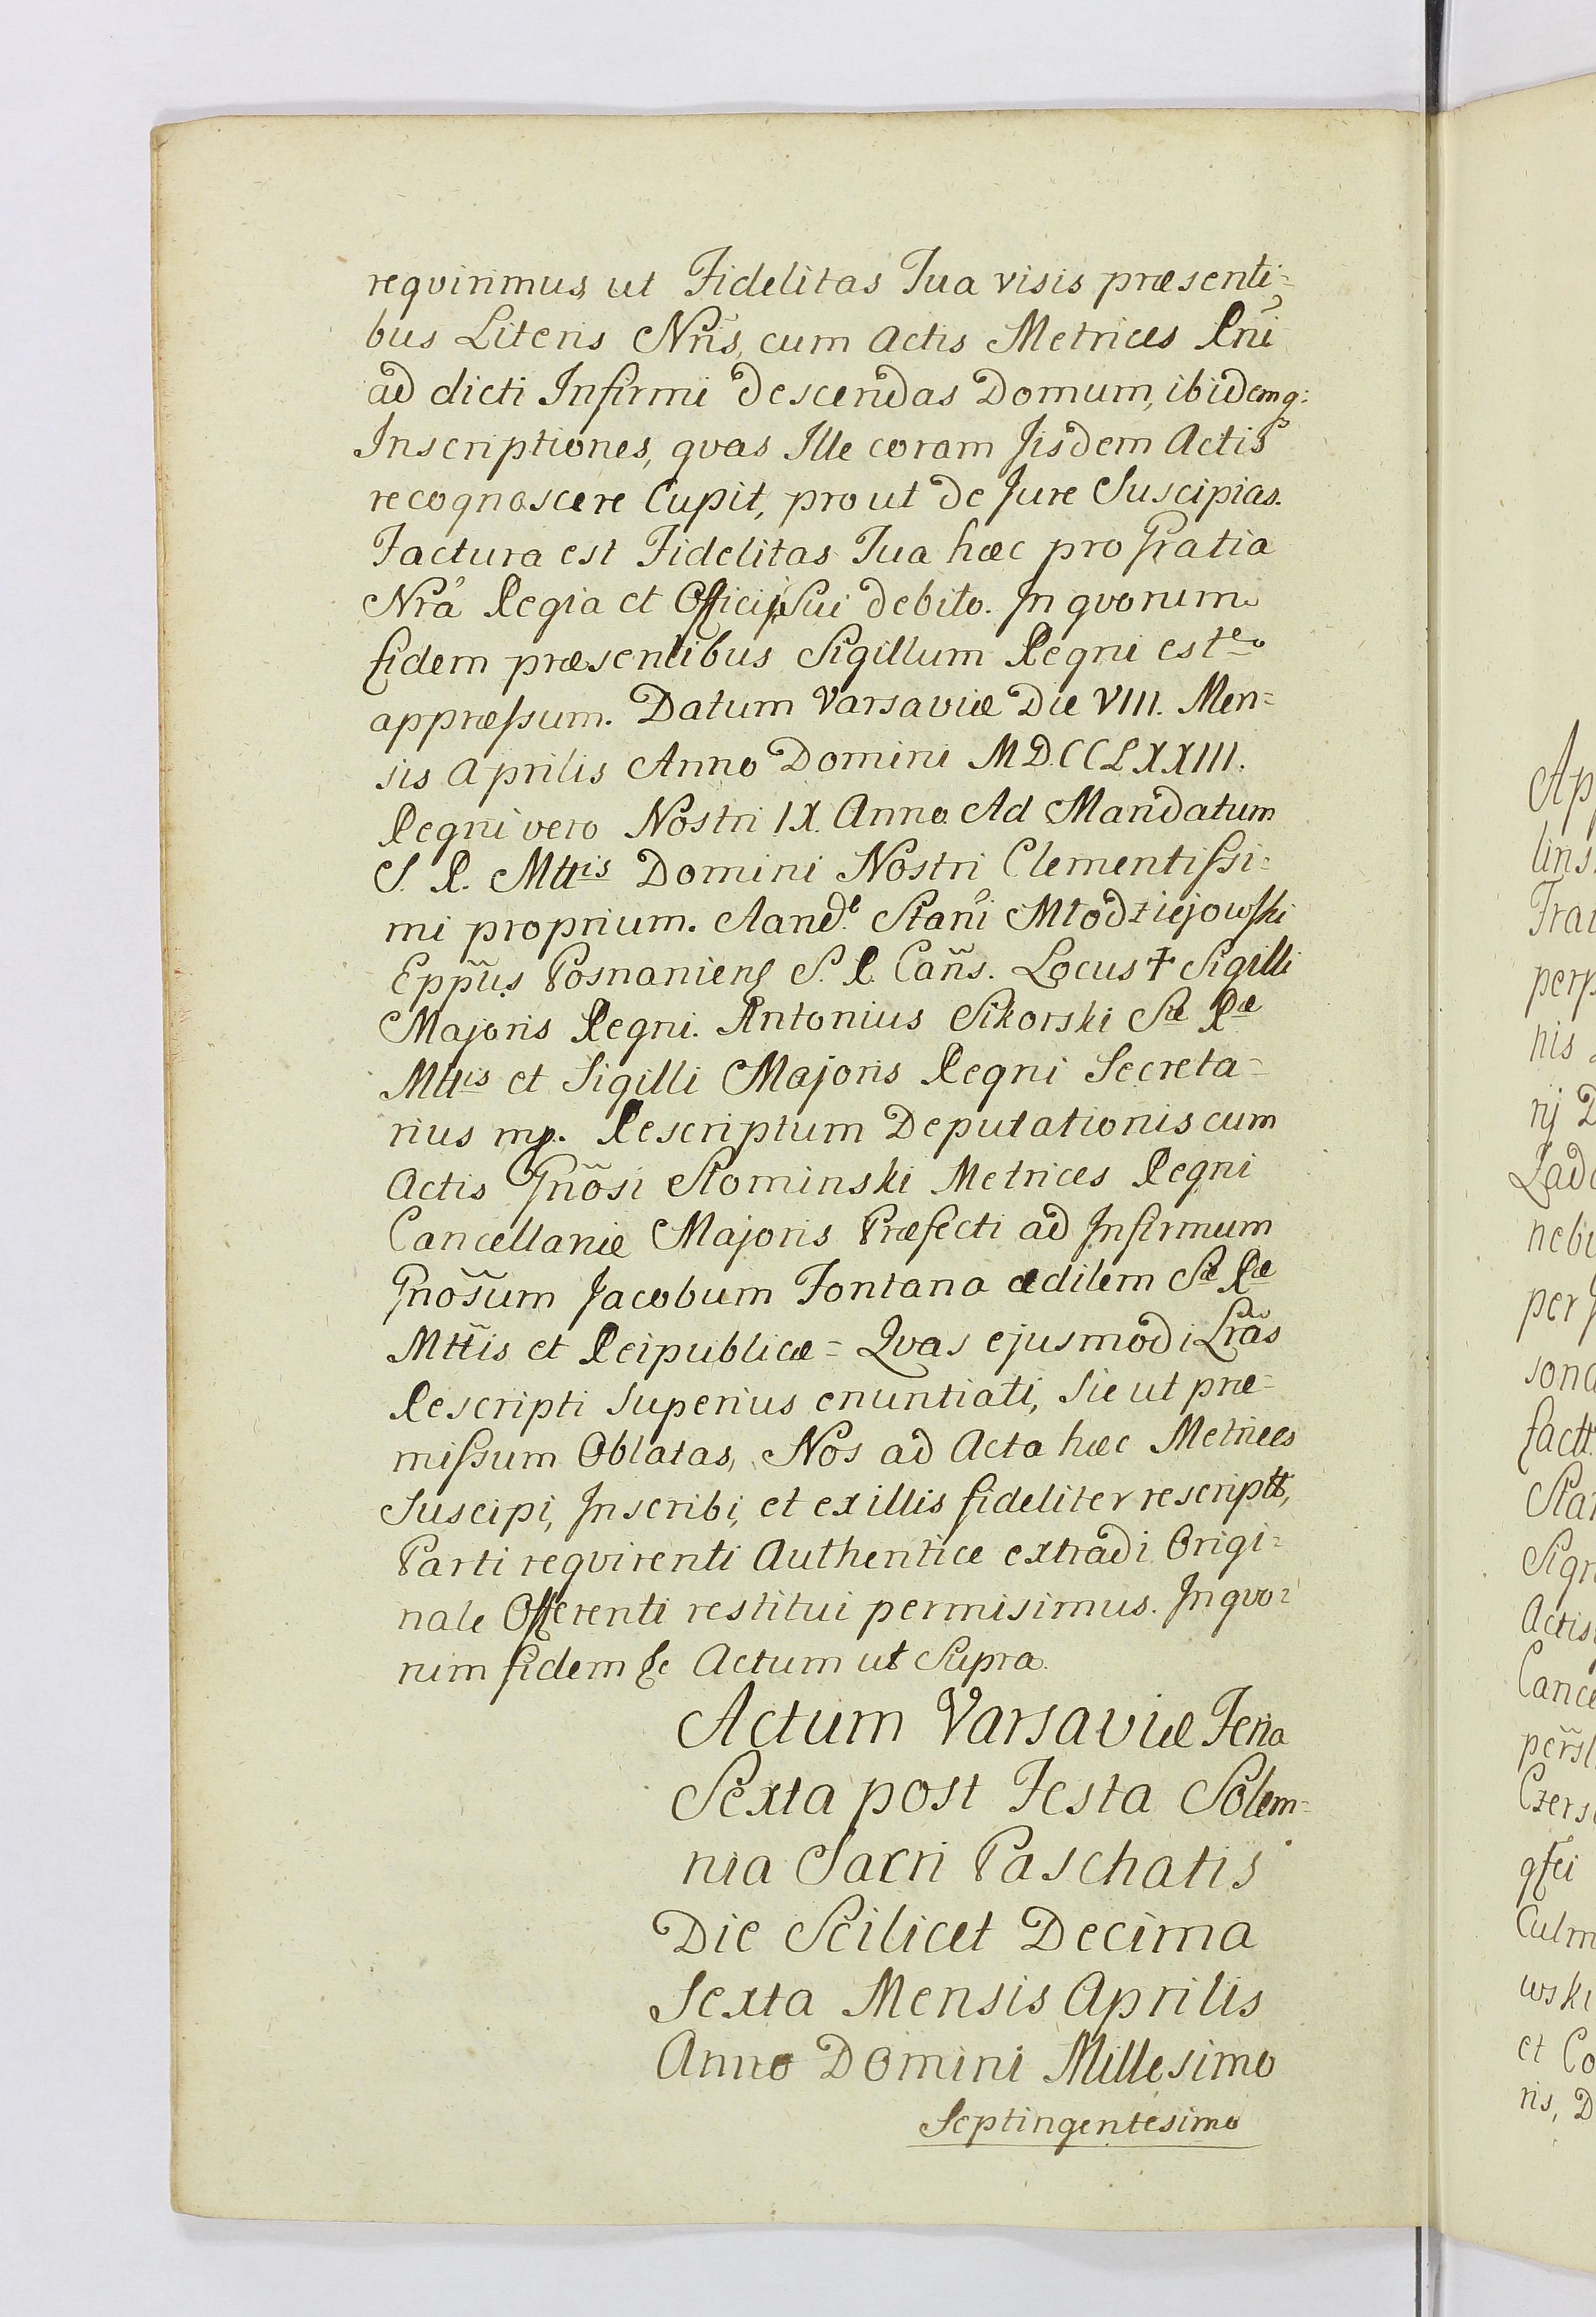 requirimus, ut Fidelitas Tua visis præsenti=
bus Literis Nr̃is, cum Actis Metrices Rñi
ad dicti Infirmi descendas Domum, ibidemq:
Inscriptiones, qvas Ille coram Iisdem Actis
recognoscere Cupit, prout de Jure Suscipias.
Factura est Fidelitas Tua hæc pro Gratia
Nrã Regia et Officij Sui debito. In qvorum
fidem præsentibus Sigillum Regni est
appræssum. Datum Varsaviæ Die VIII. Men=
sis Aprilis Anno Domini MD.CCLXXIII.
Regni vero Nostri IX. Anno. Ad Mandatum
S. R. Mttis Domini Nostri Clementissi=
mi proprium. Stani Młodziejowski
Eppũs Posnaniens S. R. Cañs. Locus † Sigilli
Majoris Regni. Antonius Sikorski Sæ Ræ
Mttis et Sigilli Majoris Regni Secreta=
rius mp. Rescriptum Deputationis cum
Actis Gnõsi Słominski Metrices Regni
Cancellariæ Majoris Præfecti ad Infirmum
Gnõsum Jacobum Fontana ædilem Sæ Ræ
Mttis et Reipublicæ = Qvas ejusmodi Lrãs
Rescripti superius enuntiati, Sic ut præ=
missum Oblatas, Nos ad Acta hæc Metrices
Suscipi, Inscribi, et ex illis fideliter rescriptt,
Parti reqvirenti Authentice extradi Origi=
nale Offerenti restitui permisimus. In qvo=
rum fidem &c Actum ut Supra.
Actum Varsaviæ Feria
Sexta post Festa Solem=
nia Sacri Paschatis
Die Scilicet Decima
Sexta Mensis Aprilis
Anno Domini Millesimo
Septingentesimo
Ap
lins
Fra
perp
his
rij D
Zad
nebi
per
sona
factt
Stan
Sign
Actis
Cance
pers̃
Czers
Culm
wski
et Co
ris, D